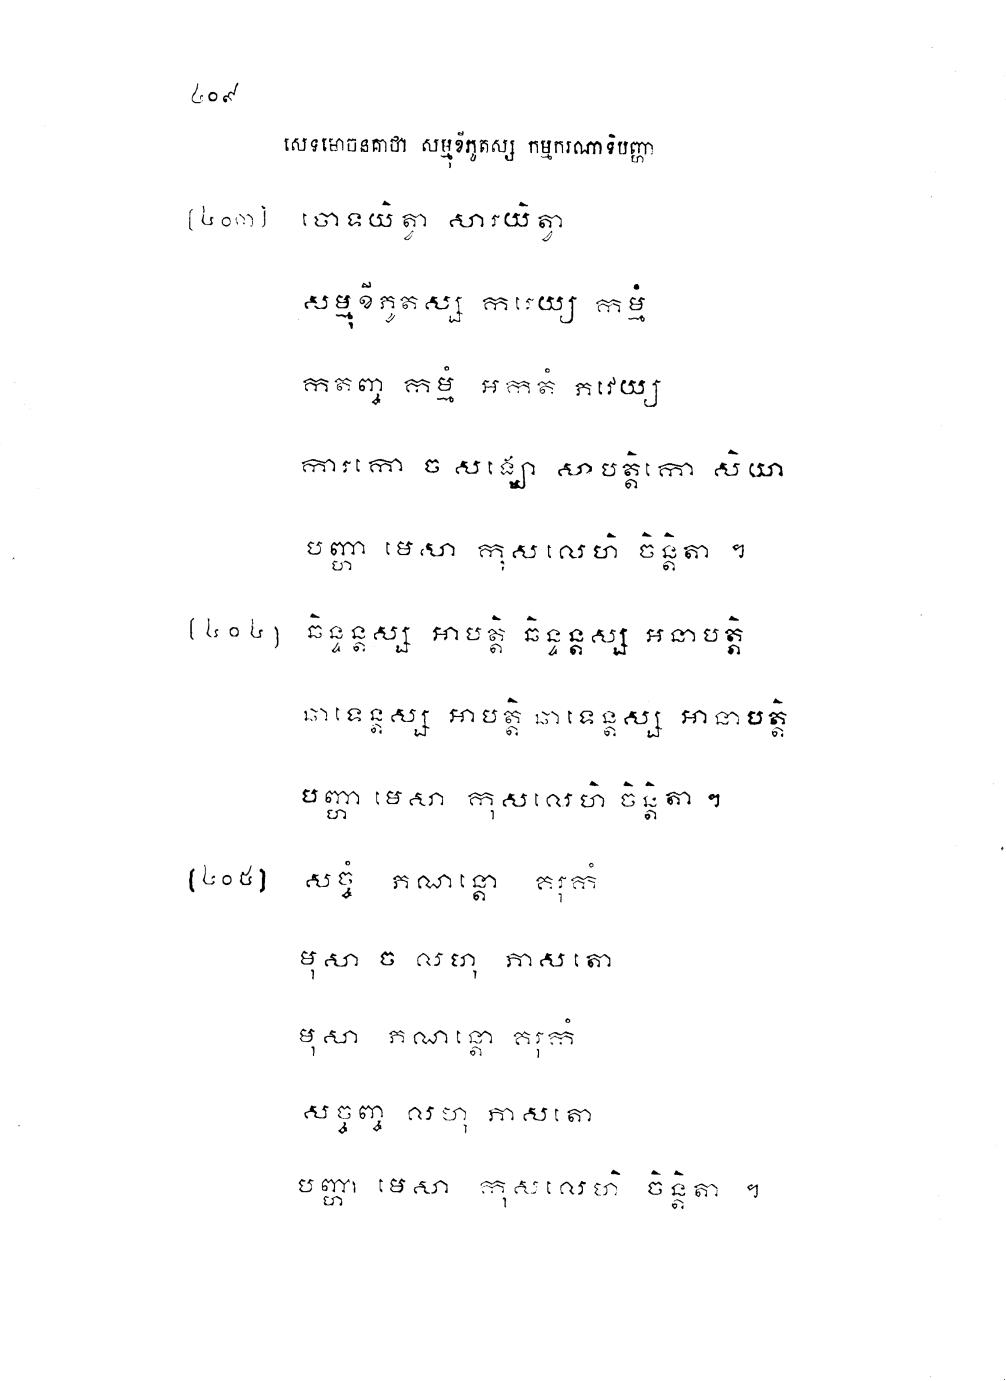 ៤០៩
សេទមោចនគាថា សម្មុខីភូតស្ស កម្មករណាទិបញ្ហា
(៤០៣) ចោទយិត្វា សារយិត្វា
សម្មុខីភូតស្ស ករេយ្យ កម្មំ
កតញ្ច កម្មំ អកតំ ភវេយ្យ
ការកោ ច សង្ឃោ សាបត្តិកោ សិយា
បញ្ហា មេសា កុសលេហិ ចិន្តិតា ។
(៤០៤) ឆិន្ទន្តស្ស អាបត្តិ ឆិន្ទន្តស្ស អនាបត្តិ
ឆាទេន្តស្ស អាបត្តិ ឆាទេន្តស្ស អានាបត្តិ
បញ្ហា មេសា កុសលេហិ ចិន្តិតា ។
(៤០៥) សច្ចំ ភណន្តោ គរុកំ
មុសា ច លហុ ភាសតោ
មុសា ភណន្តោ គរុកំ
សច្ចញ្ច លហុ ភាសតោ
បញ្ហា មេសា កុសលេហិ ចិន្តិតា ។